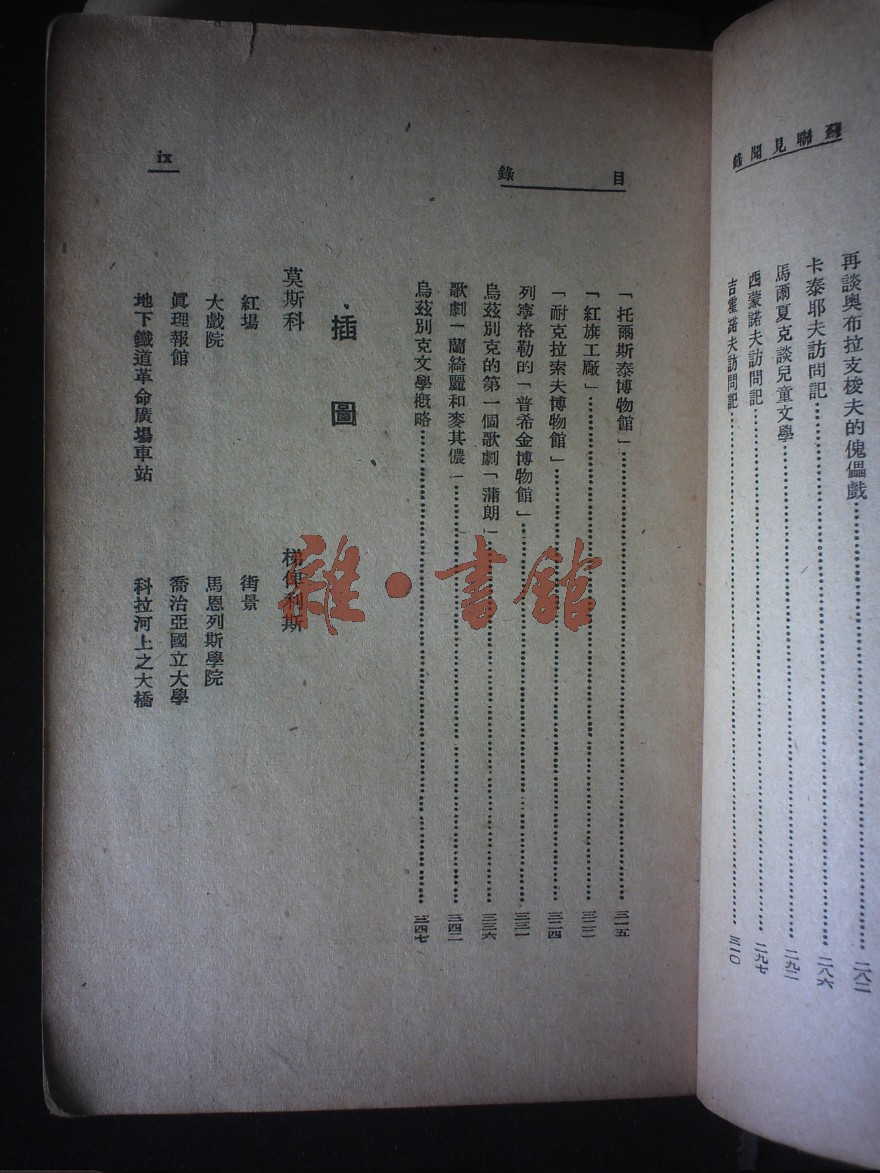 蘇聯見聞錄
再談奧布拉支梭夫的傀儡戲……二八二
卡泰耶夫訪問記……二八六
馬爾夏克談兒童文學……二九二
西蒙諾夫訪問記……二九七
吉霍諾夫訪問記……三一〇
目錄
「托爾斯泰博物館」……三一五
「紅旗工廠」……三二二
「耐克拉索夫博物館」……三二四
列寧格勒的「普希金博物館」……三三一
烏茲別克的第一個歌劇「蒲朗」……三三六
歌劇「蘭綺麗和麥其儂」……三四二
烏茲別克文學概略……三四七
插圖
莫斯科
梯俾利斯
紅場
街景
大戲院
馬恩列斯學院
眞理報館
喬治亞國立大學
地下鐵道革命廣場車站
科拉河上之大橋
ix
雜·書館